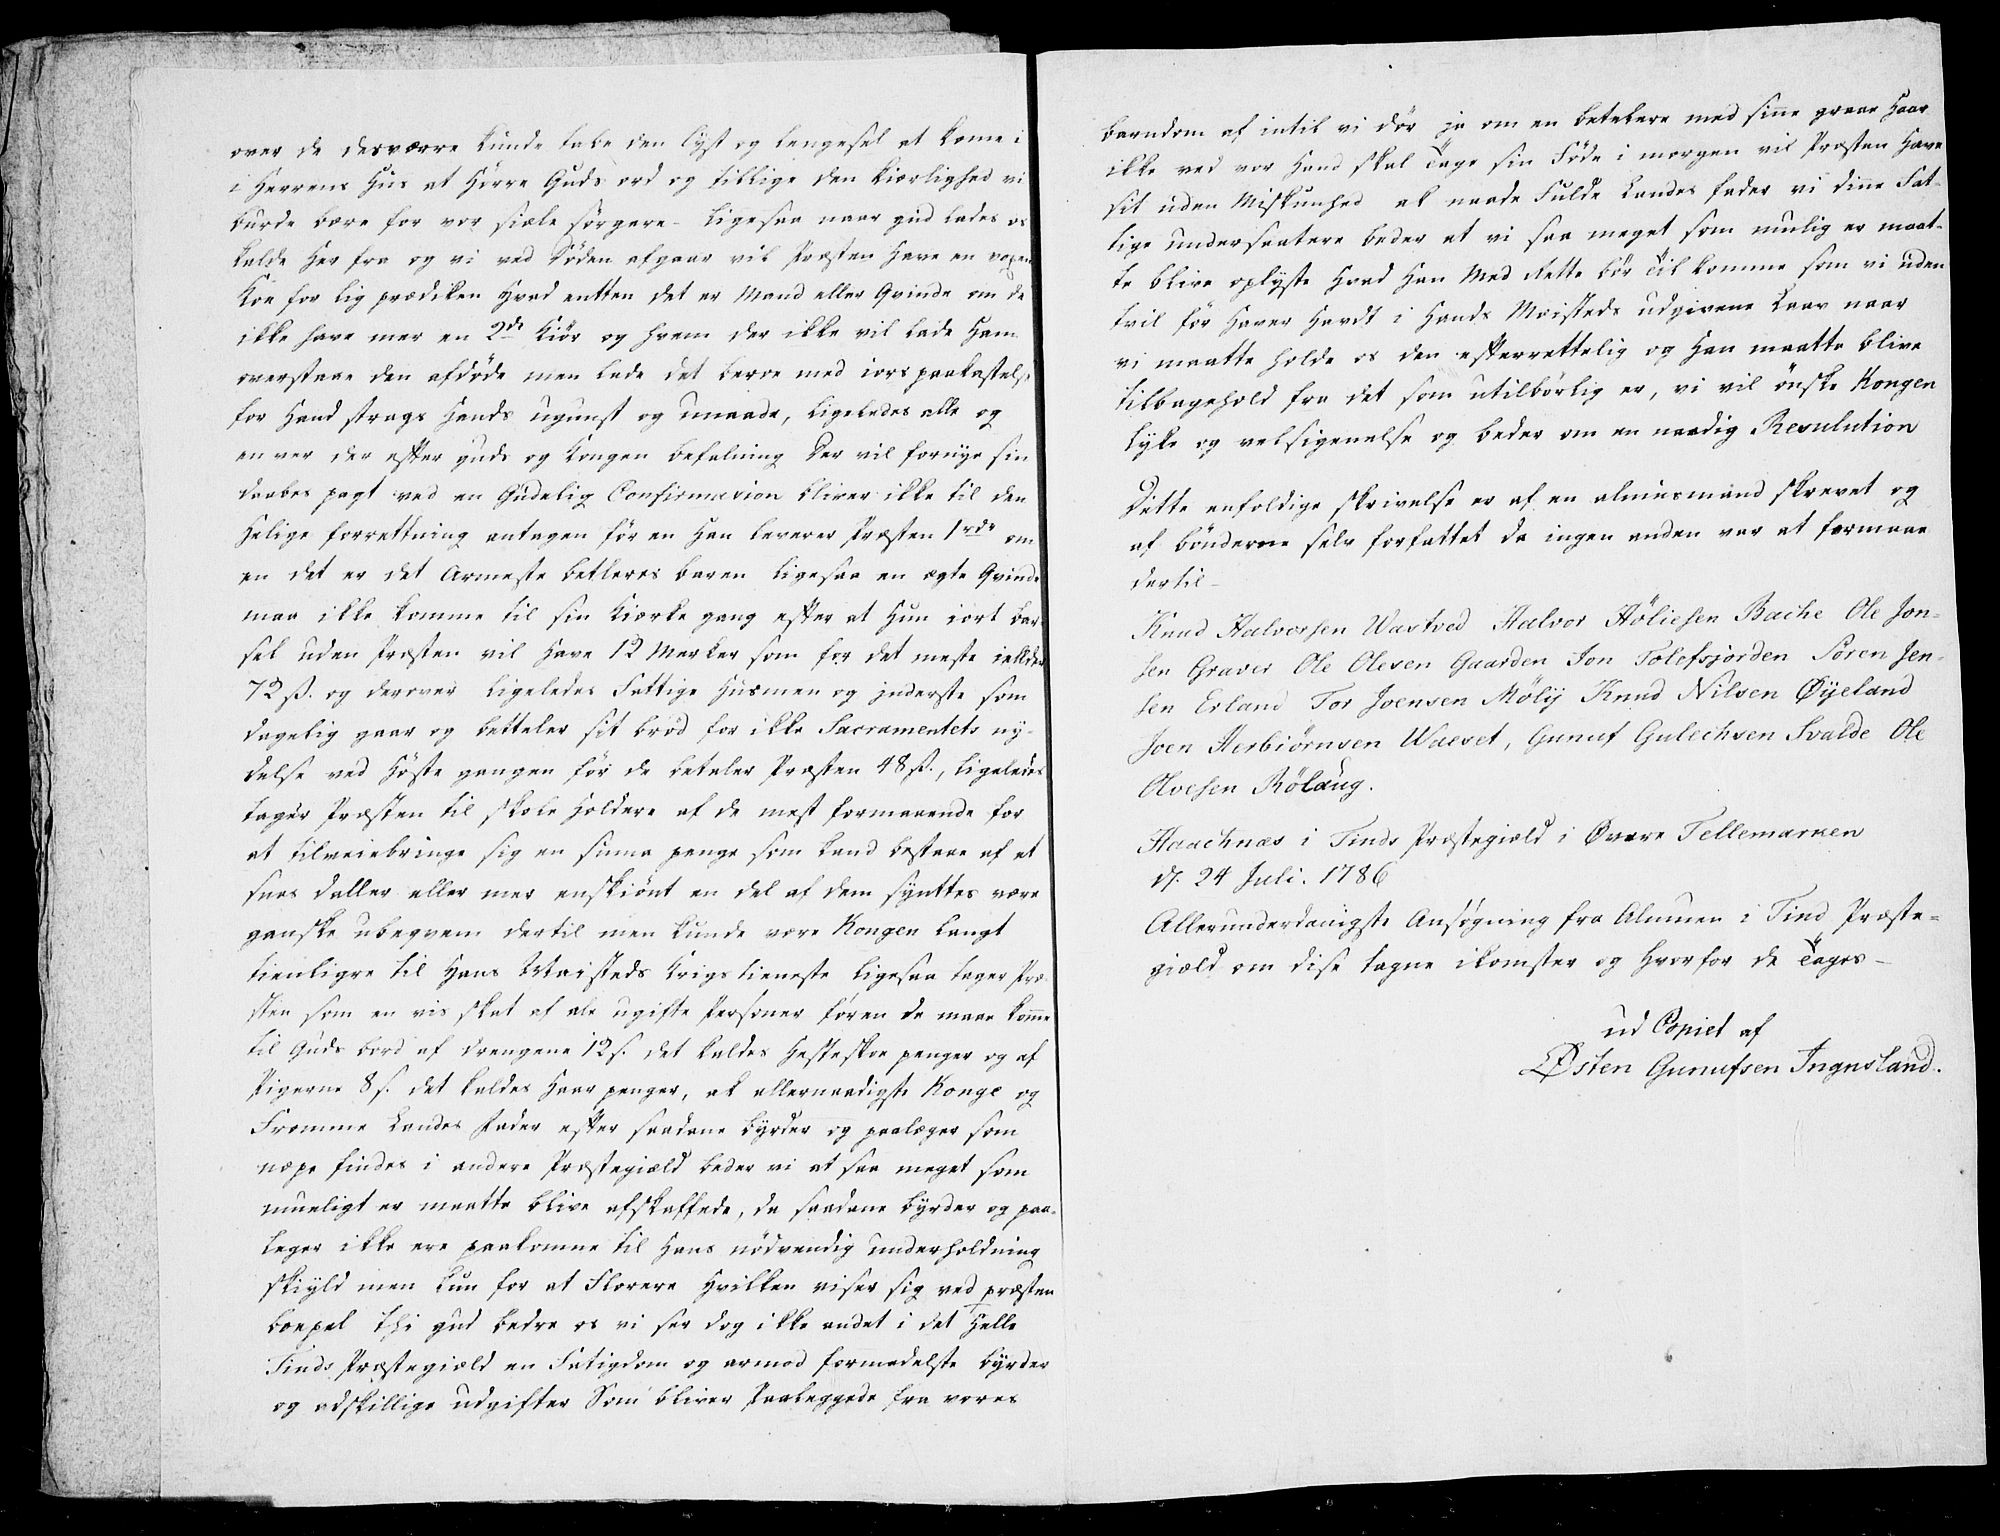 over de desværre kunde tabe den lyst og lengesel at kome i
i Herrens Hus at Hörre Guds ord og tillige den kiærlighed vi
burde bære for vor siæle sörgere - ligesaa naar gud lades os
kalde her fra og vi ved Döden afgaar vil Præsten Have en voxen
Koe for lig prædiken Hvad entten det er Mand eller Qvinde om de
ikke have mer en 2de Kiör og hvem der ikke vil lade Ham
overstaae den afdöde men lade det beroe med iors paakastelse
for Hand strags Hands ugunst og unaade, ligeledes alle og
en ver der efter guds og Kongen befalning der vil fornye sin
daabes pagt ved en Gudelig Confirmasion bliver ikke til den
Helige forrettning antagen för en Han leverer Præsten 1rde om
en det er det Armeste betleres baren ligesaa en ægte Qvinde
maa ikke komme til sin kiærke gang efter at Hun iort bar
sel uden Præsten vil Have 12 Merker som for det meste iellder
72 ß. og derover ligeledes Fattige Husmen og inderste som
dagelig gaar og betteler sit bröd for ikke Sacramentets ny-
delse ved Höste gangen för de betaler Præsten 48 ß., ligeledes
tager Præsten til skole Holdere af de mest formaaende for
at tilveiebringe sig en suma penge som kand bestaae af et
snes daller eller mer enskiönt en del af dem synttes være
ganske ubeqvem dertil men kunde være Kongen langt
tienligre til Hans Maisteds Krigstieneste ligesaa tager Præ-
sten som en vis skat af ale ugifte Personer för en de maae kome
til Guds bord af drengene 12 s. det kaldes Hesteskoe penger og af
Pigerne 8 s. det kaldes Haar penger, ak allernaadigste Konge og
Fromme Landes Fader efter saadane byrder og paalæger som
næpe findes i andere Præstegiæld beder vi at saa meget som
mueligt er maatte blive afskaffede, da saadane byrder og paa-
læger ikke ere paakomne til Hans nödvendig underholdning
skiyld men kun for at Florere Hvilken viser sig ved præsten
boepel thi gud bedre os vi ser dog ikke andet i det Helle
Tinds Præstegiæld en Fatigdom og armod formedelste byrder
og adskillige udgifter Som bliver Paaleggede fra vores
barndom af intil vi dör ja om en betelere med sine graae Haar
ikke ved vor Hand skal tage sin Föde i morgen vil Præsten Have
sit uden Miskunhed ak naade Fulde Landes fader vi dine Fat-
tige undersaatere beder at vi saa meget som mulig er maat-
te blive oplyste Hvad Han Med Rette bör til komme som vi uden
tvil för Haver Havdt i Hands Maisteds udgivene Laav naar
vi maatte holde os den efterrettelig og Han maatte blive
tilbagehold fra det som utilbörlig er, vi vil önske Kongen
lyke og velsigenelse og beder om en naadig Resulution
Dette enfoldige skrivelse er af en almuesmand skrevet og
af bönderne selv forfattet da ingen anden var at formaae
dertil -
Knud Halvorsen Wastved Halvor Höliesen Bache Ole Jon-
sen Graver Ole Olesen Gaarden Jon Tolefsjorden Sören Jen-
sen Erland Tor Joensen Mölij Knud Nilsen Øyeland
Joen Herbiörnsen Waeset, Gunuf Gulichsen Svalde Ole
Olvesen Rölaug.
Haachnæs i Tinds Præstegiæld i Øvere Tellemarken
d. 24 Juli. 1786
Allerunderdanigste Ansögning fra Almuen i Tind Præste-
giæld om dise tagne ikomster og Hvorfor de tages -
ud Copiet af
Østen Gunufsen Ingnsland.